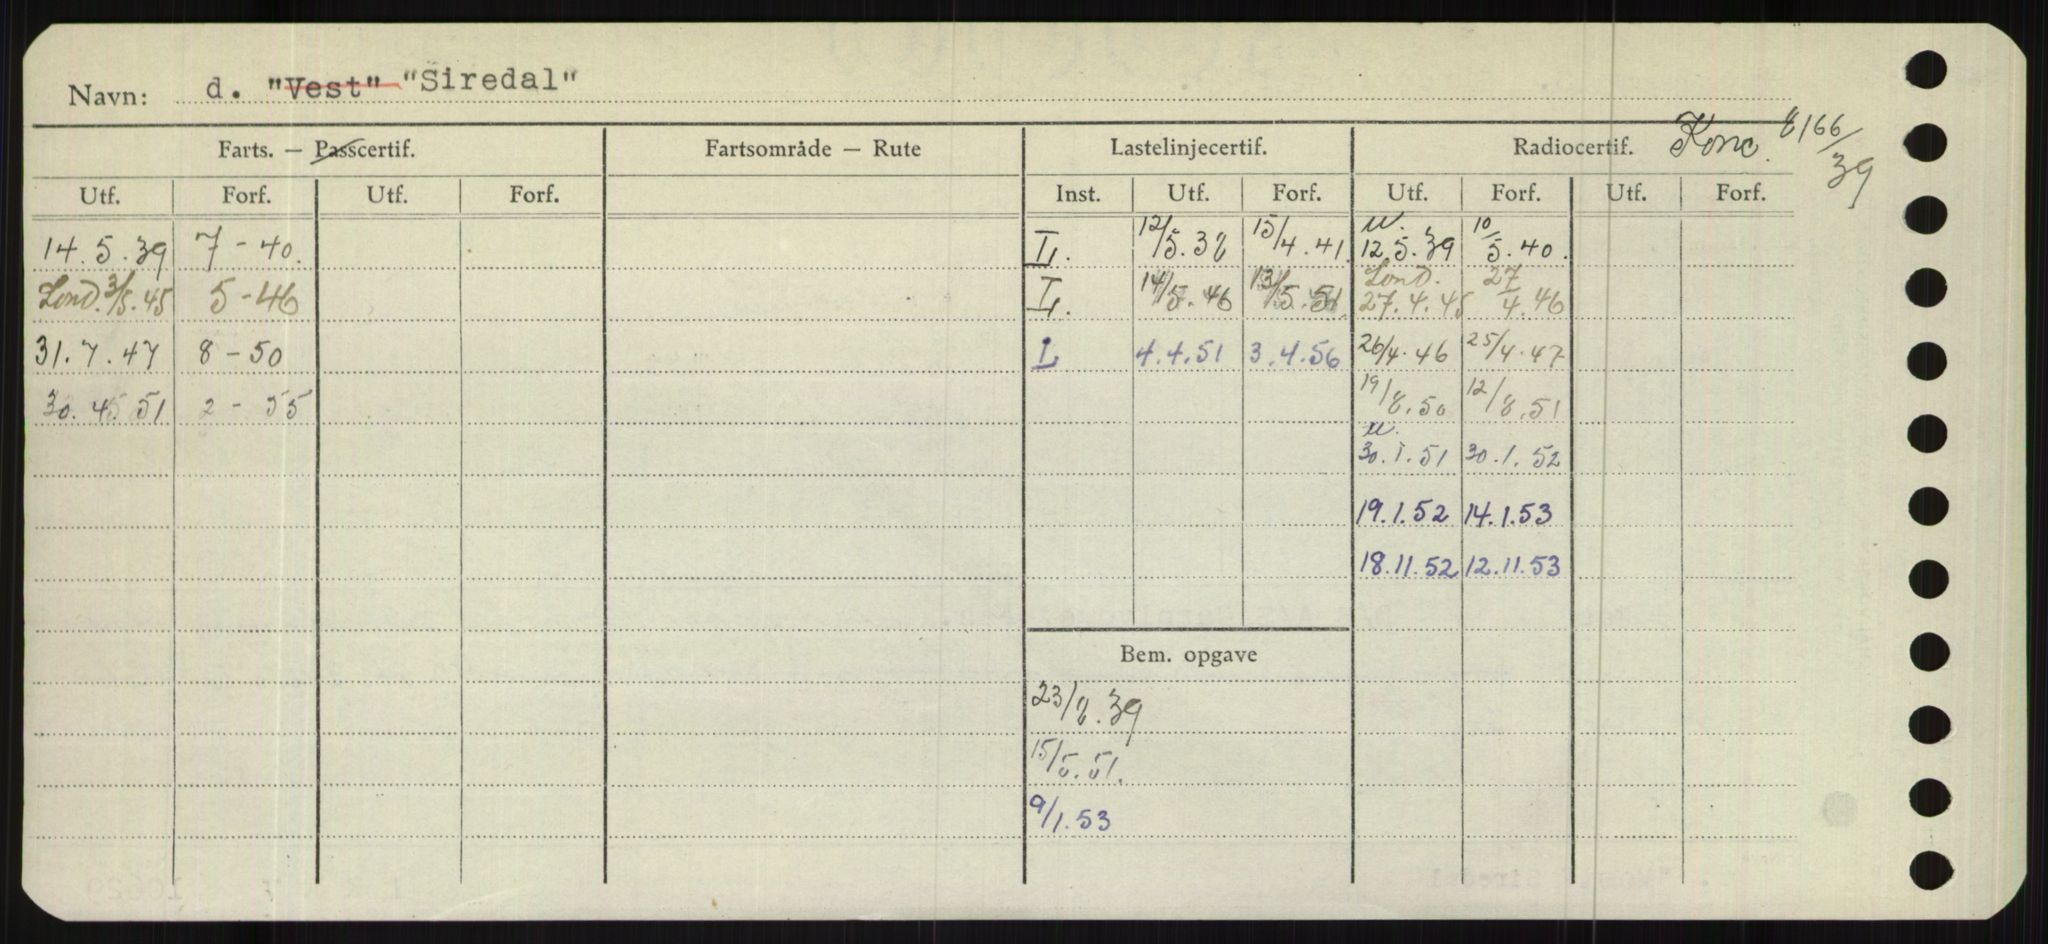 Navn: d. "Vest" "Siredal"
Farts. — Passcertif. Fartsområde — Rute Lastelinjecertif. Radiocertif. Konc. 8166/39
Utf. Forf. Utf. Forf. Inst. Utf. Forf. Utf. Forf. Utf. Forf.
14.5.39 7-40. L. 12/5.38 15/4.41. U. 12.5.39 10/5.40.
Lond. 3/5.45 5-46 L. 14/5.46 13/5.51. Lond. 27.4.45 27/4.46
31.7.47 8-50 L 4.4.51 3.4.56 26/4.46 25/4.47
30.4.51 2-55 19/8.50 12/8.51
U. 30.1.51 30.1.52
19.1.52 14.1.53
18.11.52 12.11.53
Bem. opgave
23/8.39
15/5.51.
9/1.53